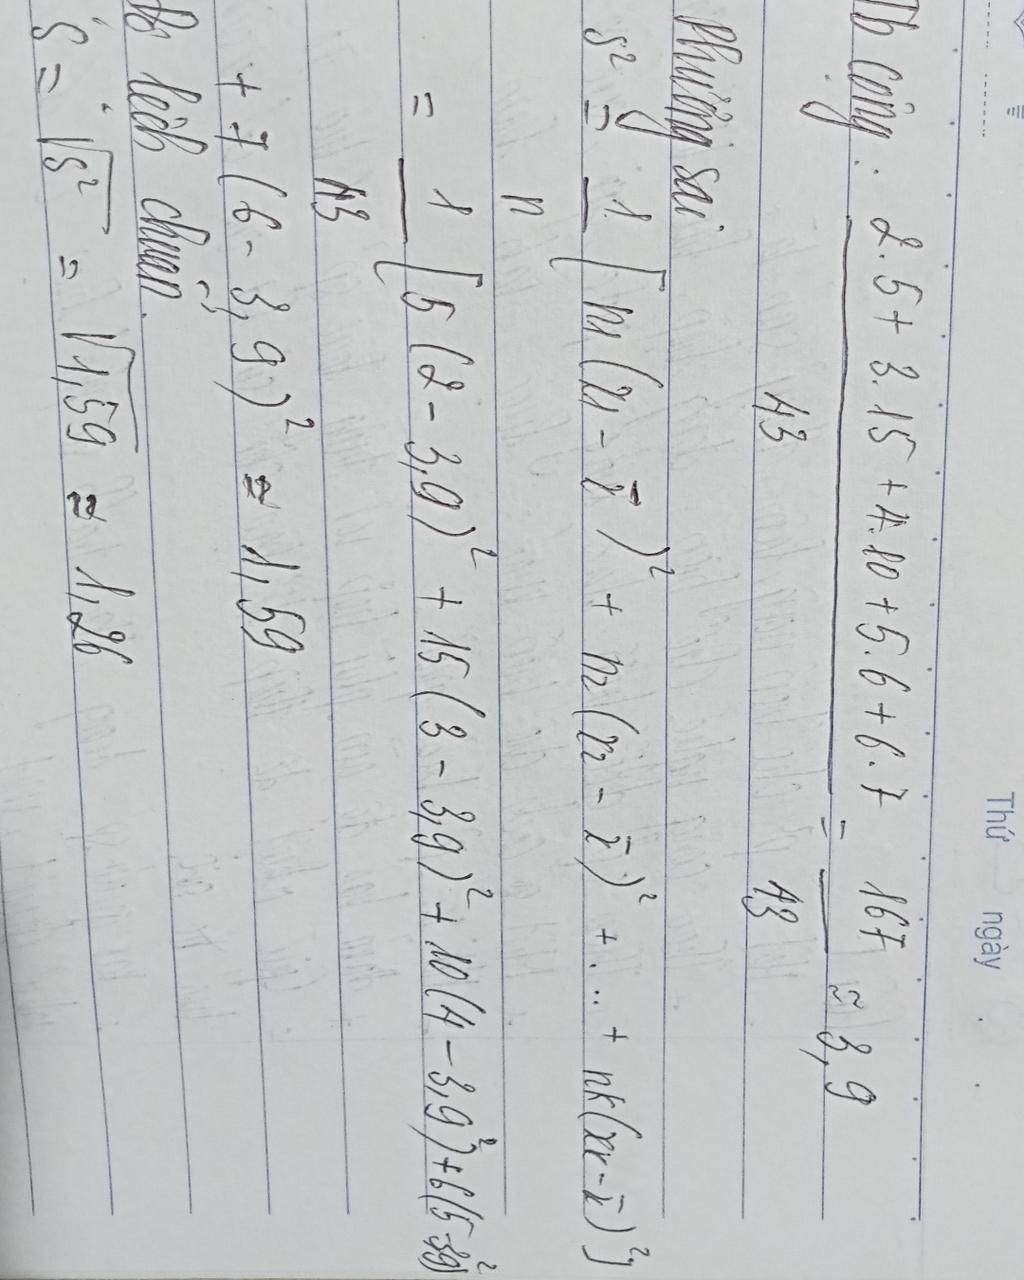 Thứ ngày
Tb cộng. 2.5 + 3.15 + 4.10 + 5.6 + 6.7 = 167 ≈ 3,9
43 43
Phương sai
s² = 1 [n1(x1 - x̄)² + n2(x2 - x̄)² + ... + nk(xk - x̄)²]
n
= 1 [5(2 - 3,9)² + 15(3 - 3,9)² + 10(4 - 3,9)² + 6(5 - 3,9)²
43
+ 7(6 - 3,9)² ≈ 1,59
Độ lệch chuẩn.
S = √s² = √1,59 ≈ 1,26